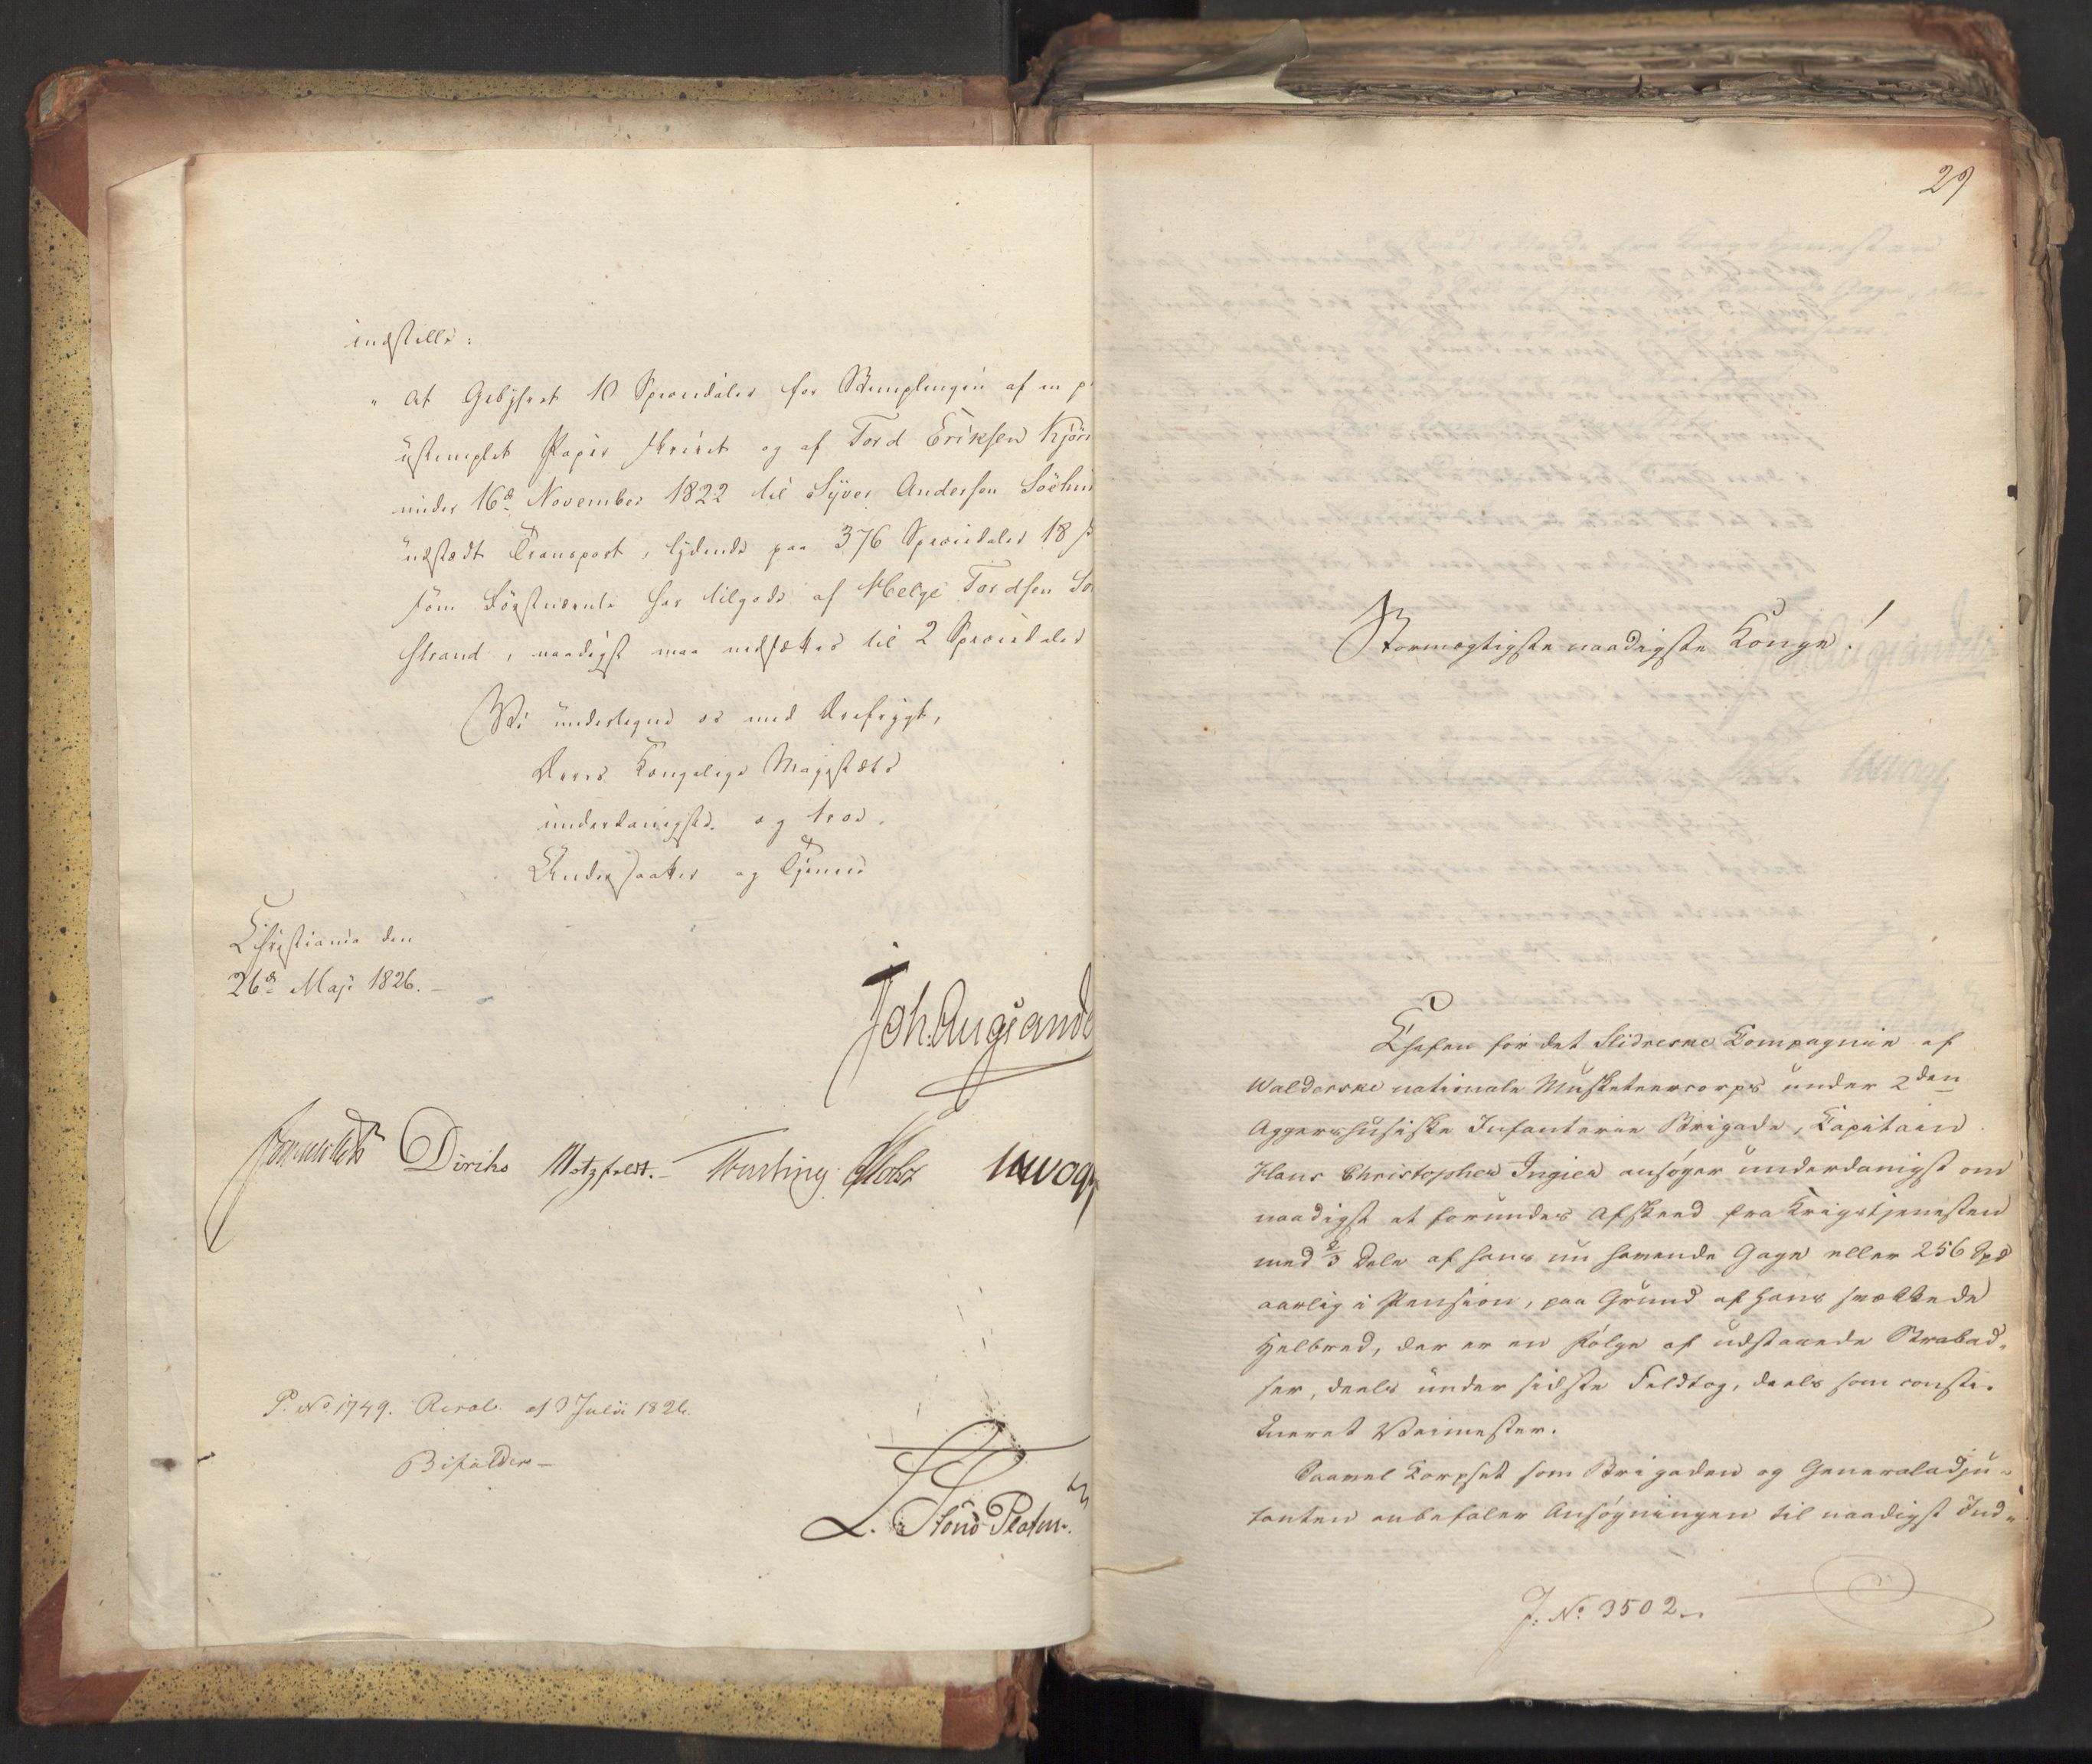 indstille:
" at Gebyhret 10 Speciedaler for Stemplingen af en p
ustemplet Papir skrevet og af Tord Eriksen Kjörs
under 16d November 1822 til Syver Andersen
udstædt Transport, lydende paa 376 Speciedaler 18 s
som Förstnævnte har tilgode af Helge Tordsen
strand, naadigst maa nedsættes til 2 Speciedaler
Vi undertegne os med Ærefrygt,
Deres Kongelige Majestæts
underdanigste og troe
Undersaatter og Tjenere
Christiania den
26d Maji 1826.
Joh. Aug: Sande
Diriks Motzfeldt. Holst Vogt
P. No 1749. Resol. af 9 Julii 1826.
Bifaldes
L. Stone Platen.
29
Stormægtigste naadigste Konge!
Chefen for det Slidreske Compagnie af
Walderske nationale Musketeercorps under 2den
Aggershusiske Infanterie Brigade, Capitain
Hans Christopher Ingier ansøger underdanigst om
naadigst at forundes Afskeed fra Krigstjenesten
med 2/3 Dele af hans nu havende Gage eller 256 Spd
aarlig i Pension, paa Grund af hans svækkede
Helbred, der er en Følge af udstaaede Strabad-
ser, deels under sidste Feldtog, deels som consti-
tueret Veimester.
Saavel Corpset som Brigaden og Generaladju-
tanten anbefaler Ansøgningen til naadigst Ind-
J. No. 3502